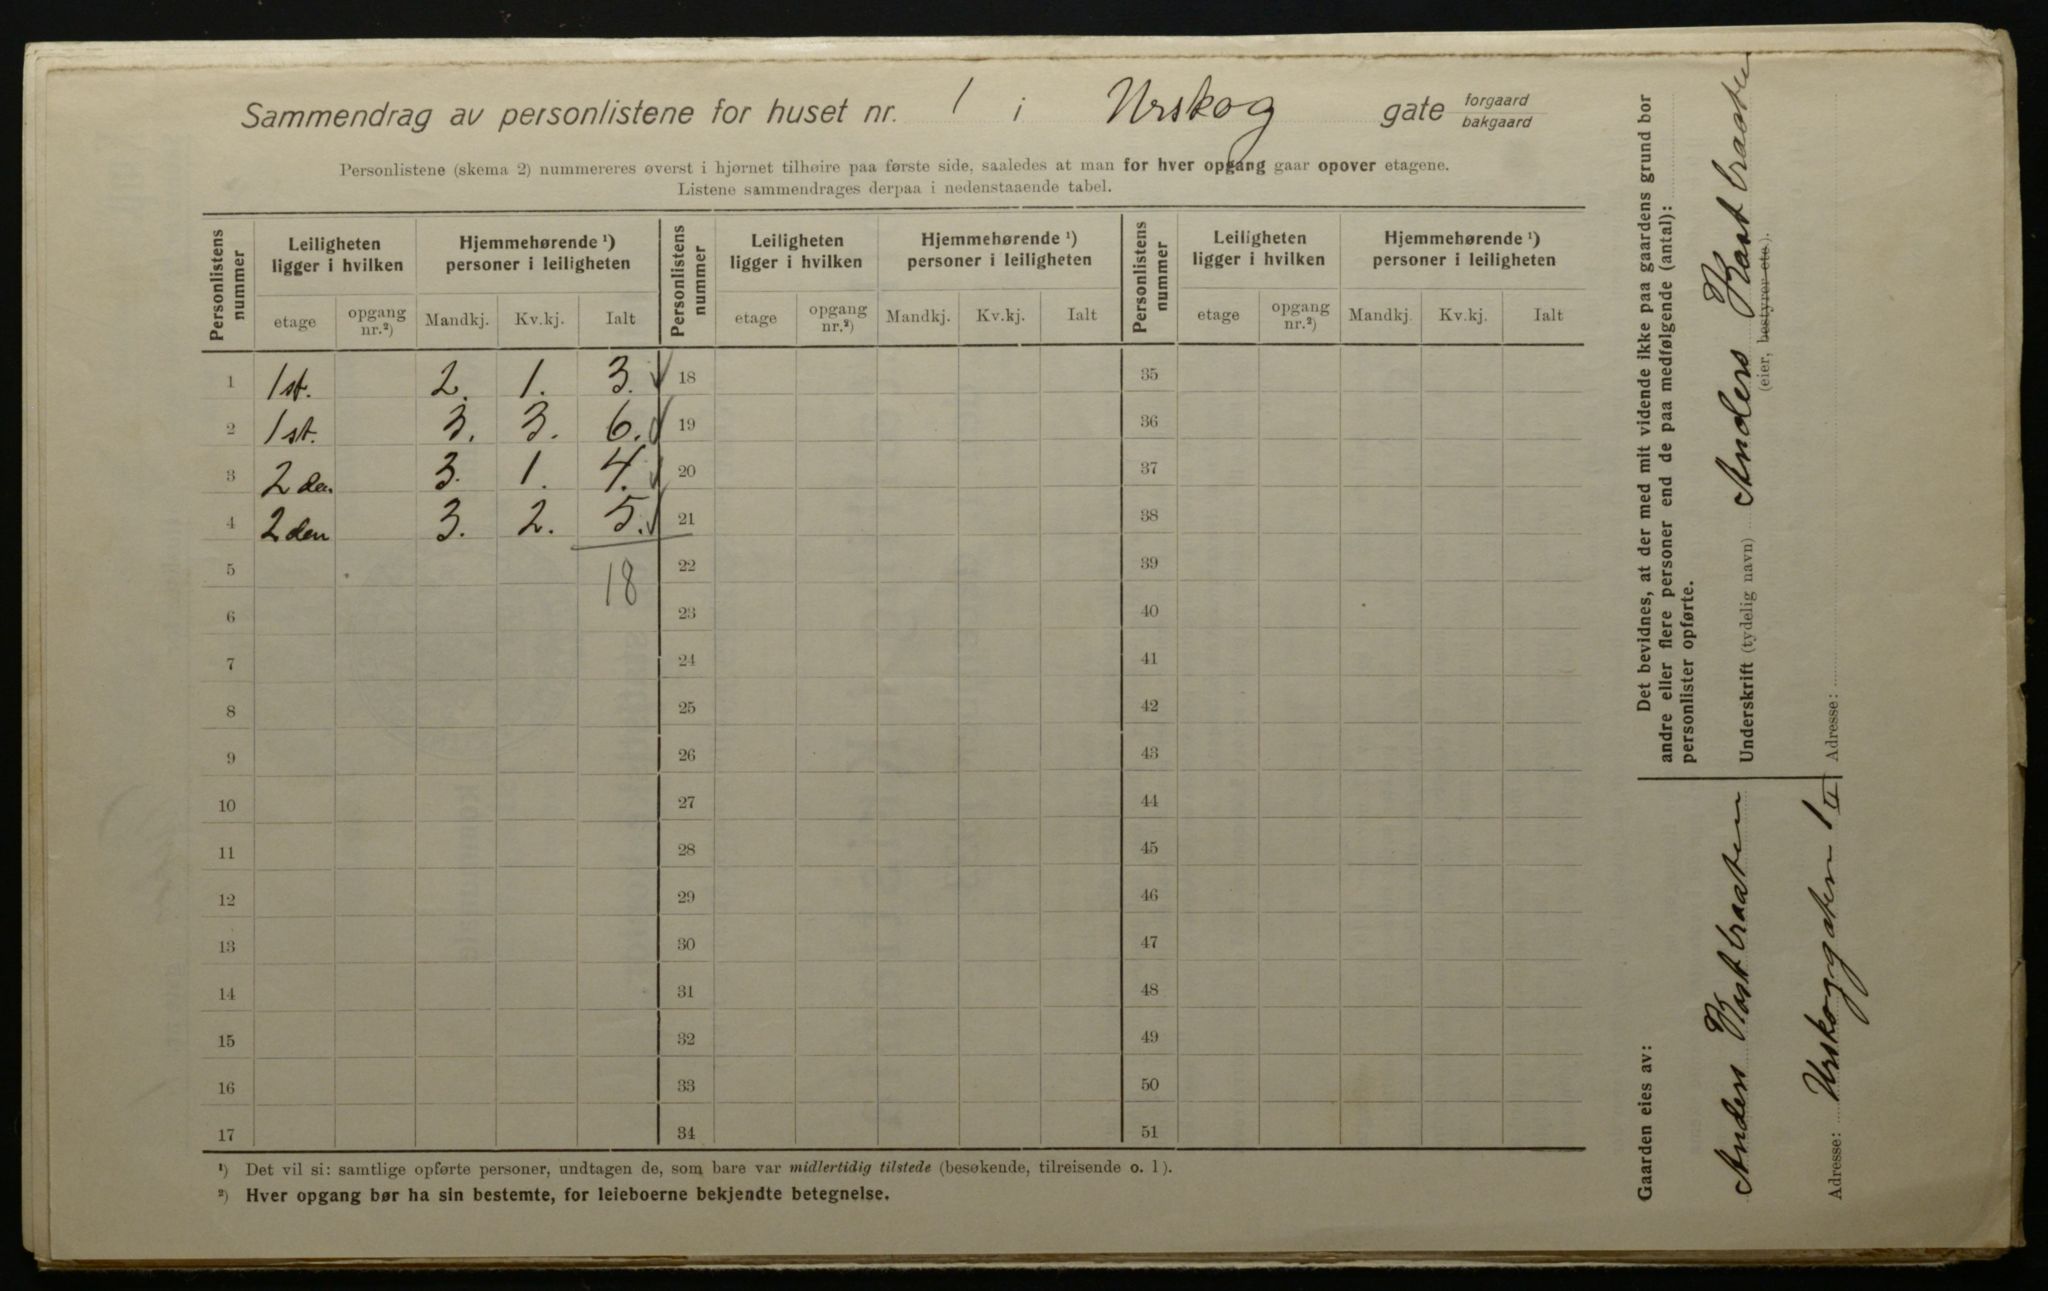 Sammendrag av personlistene for huset nr. 1 i Urskog gate forgaard bakgaard
Personlistene (skema 2) nummereres øverst i hjørnet tilhøire paa første side, saaledes at man for hver opgang gaar opover etagene.
Listene sammendrages derpaa i nedenstaaende tabel.
Personlistens nummer Leiligheten ligger i hvilken Hjemmehørende ¹) personer i leiligheten Personlistens nummer Leiligheten ligger i hvilken Hjemmehørende ¹) personer i leiligheten Personlistens nummer Leiligheten ligger i hvilken Hjemmehørende ¹) personer i leiligheten
etage opgang nr.²) Mandkj. Kv.kj. Ialt etage opgang nr.²) Mandkj. Kv.kj. Ialt etage opgang nr.²) Mandkj. Kv.kj. Ialt
1 1 st. 2. 1. 3. 18 35
2 1 st. 3. 3. 6. 19 36
3 2 den. 3. 1. 4. 20 37
4 2 den 3. 2. 5. 21 38
5 18 22 39
6 23 40
7 24 41
8 25 42
9 26 43
10 27 44
11 28 45
12 29 46
13 30 47
14 31 48
15 32 49
16 33 50
17 34 51
¹) Det vil si: samtlige opførte personer, undtagen de, som bare var midlertidig tilstede (besøkende, tilreisende o. l).
²) Hver opgang bør ha sin bestemte, for leieboerne bekjendte betegnelse.
Det bevidnes, at der med mit vidende ikke paa gaardens grund bor
andre eller flere personer end de paa medfølgende (antal):
personlister opførte.
Underskrift (tydelig navn) Anders Rastbraaten
(eier, bestyrer etc.).
Adresse:
Gaarden eies av:
Anders Rastbraaten
Adresse: Urskoggaten 1 II